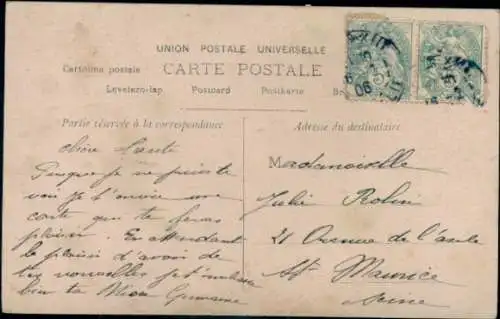 UNION POSTALE UNIVERSELLE
Cartolina postale CARTE POSTALE
Levelezo-lap Postcard Postkarte
Partie réservée à la correspondance
Adresse du destinataire
chère
Puisque je ne puis te
voir je t'envoie une
carte que te feras
plaisir. En attendant
le plaisir d'avoir de
tes nouvelles je t'embrasse
bien ta Germaine
Mademoiselle
Julie Robin
21 Avenue de l'asile
St Maurice
Seine